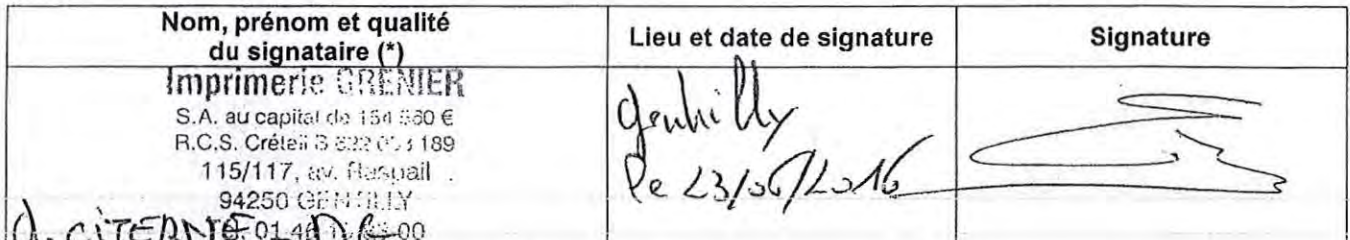 Nom, prénom et qualité
du signataire (*)
Lieu et date de signature
Signature
Imprimerie GRENIER
S.A. au capital de 154 560 €
R.C.S. Créteil B 189
115/117, av. Raspail
94250 GENTILLY
01 46 00
CITERNE
Gentilly
le 23/06/2016